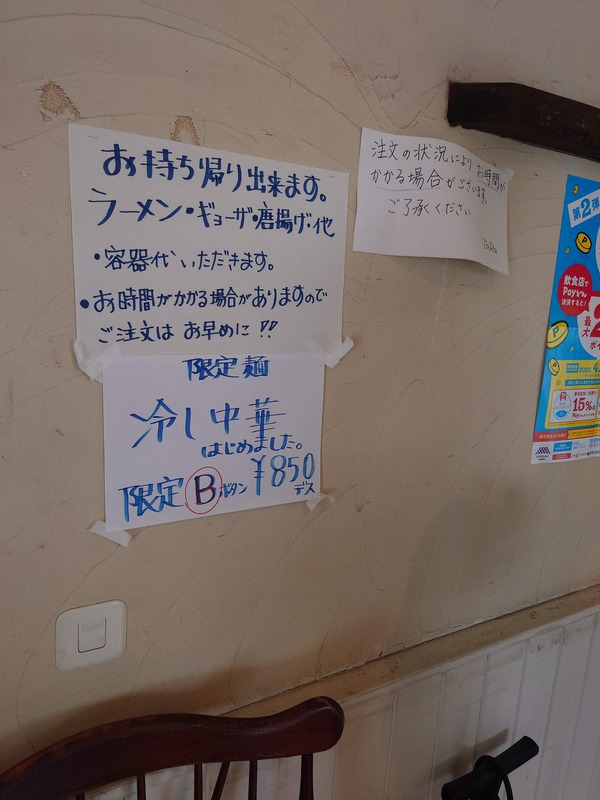 お持ち帰り出来ます。
ラーメン・ギョーザ・唐揚げ・他
・容器代いただきます。
・お時間がかかる場合がありますので
ご注文は お早めに!!
限定麺
冷し中華
はじめました。
限定 B ボタン ¥850
デス
注文の状況により お時間が
かかる場合がございます。
ご了承ください
TaRa
第2弾
飲食店で
Payどん
決済すると!
最大
2022.4
15%